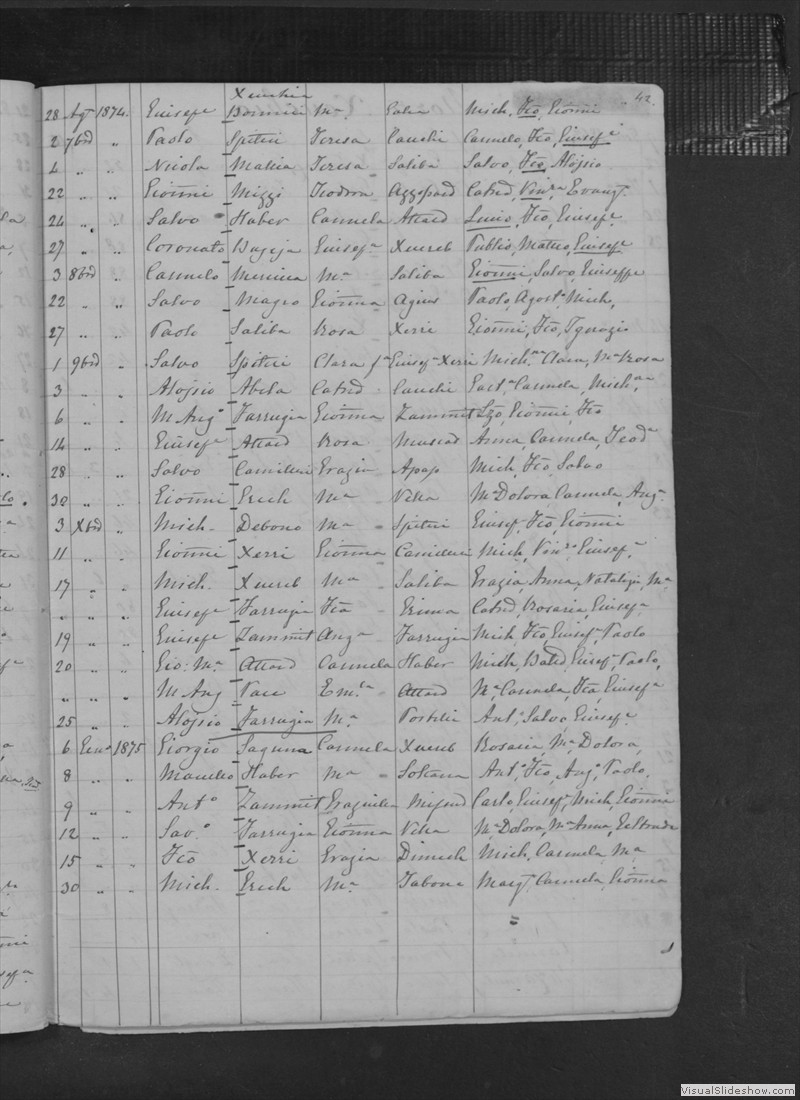 42.
Xuechia
28 Agto 1874. Giusepe Bonnici Ma Galea Mich, Fco, Gionni
2 7brd " Paolo Spiteri Teresa Cauchi Carmelo, Fco, Giusepe
4 " " Nicola Mallia Teresa Saliba Salvo, Fco, Alojsio
22 " " Gionni Mizzi Teodora Azzopard Catnd, Vinza, Evang.
24 " " Salvo Haber Carmela Attard Fco, Giusepe
27 " " Coronato Bugeja Giusepa Xuereb Publio, Matteo, Giusepe
3 8brd " Carmelo Mercieca Ma Saliba Gionni, Salvo, Giuseppe
22 " " Salvo Magro Gionna Agius Paolo, Agosto, Mich,
27 " " Paolo Saliba Rosa Xerri Gionni, Fco, Ignazio
1 9brd " Salvo Spiteri Clara fa Giusepa Xerri Michna, Clara, Ma Rosa
3 " " Alojsio Abela Catnd Cauchi Carmela, Michna
6 " " M Ango Farrugia Gionna Zammit Lzo, Gionni, Fco
14 " " Giusepe Attard Rosa Muscad Anna, Carmela, Teoda
28 " " Salvo Camilleri Grazia Apap Mich, Fco, Salvo
30 " " Gionni Grech Ma Vella Ma Dolora, Carmela, Anga
3 Xbrd " Mich. Debono Ma Spiteri Giusep, Fco, Gionni
11 " " Gionni Xerri Gionna Camilleri Mich, Vinzo, Giusepe
17 " " Mich. Xuereb Ma Saliba Grazia, Anna, Natalizia, Ma
" " " Giusepe Farrugia Fca Grima Catnd, Rosaria, Giusepa
19 " " Giusepe Zammit Anga Farrugia Mich, Fco, Giusepe, Paolo
20 " " Gio: Ma Attard Carmela Haber Mich, Giusepe, Paolo,
" " " M Ang Pace Emla Attard Ma Carmela, Fca, Giusepa
25 " " Alojsio Farrugia Ma Portelli Anto, Salvo, Giusepe
6 Genno 1875 Giorgio Saguna Carmela Xuereb Rosaria, Ma Dolora,
8 " " Marcello Haber Ma Soltana Anto, Fco, Ango, Paolo,
9 " " " Anto Zammit Grazulla Mifsud Carlo, Giusepe, Mich, Gionna
12 " " Savo Farrugia Gionna Vella Ma Dolora, Ma Anna, Geltruda
15 " " Fco Xerri Grazia Dimech Mich, Carmela, Ma
30 " " Mich. Grech Ma Tabone Marg, Carmela, Gionna
VisualSlideshow.com